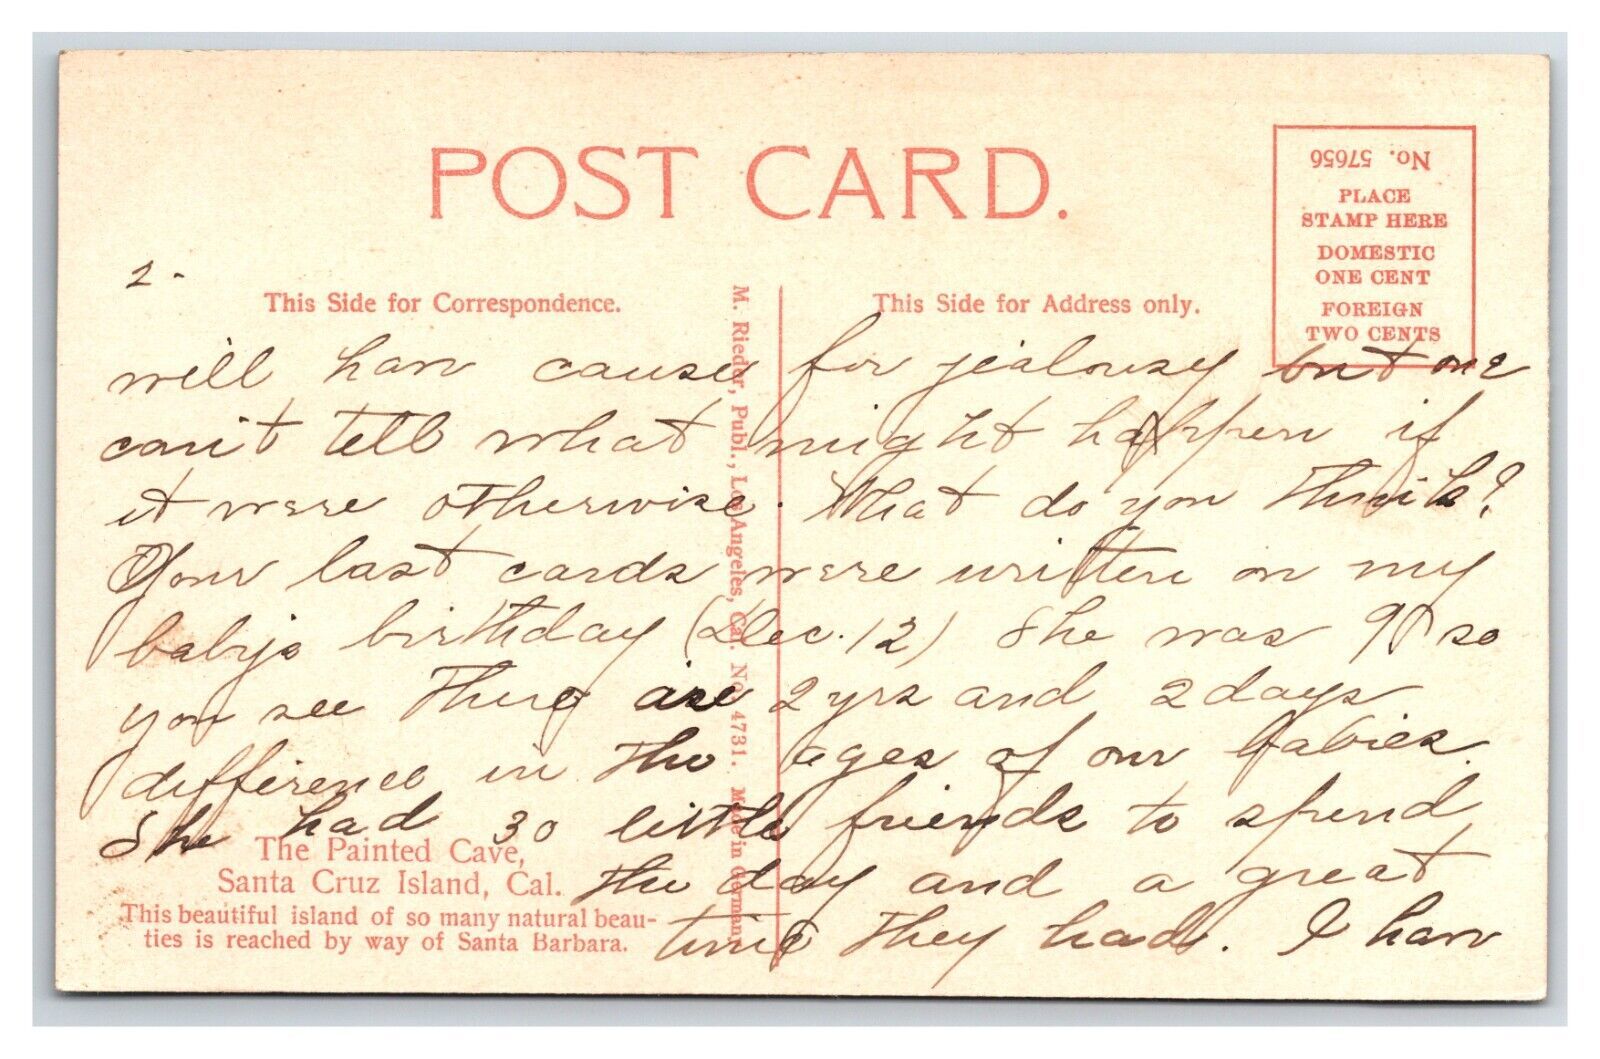 POST CARD.
No. 57656
PLACE
STAMP HERE
DOMESTIC
ONE CENT
FOREIGN
TWO CENTS
2-
This Side for Correspondence.
This Side for Address only.
M. Rieder, Publ., Los Angeles, Cal. No. 4731. Made in Germany
will have cause for jealousy but one
can't tell what might happen if
it were otherwise. What do you think?
Your last cards were written on my
baby's birthday (Dec. 12) She was 9 so
you see there are 2 yrs and 2 days
difference in the ages of our babies.
She had 30 little friends to spend
the day and a great
time they had. I have
The Painted Cave,
Santa Cruz Island, Cal.
This beautiful island of so many natural beau-
ties is reached by way of Santa Barbara.